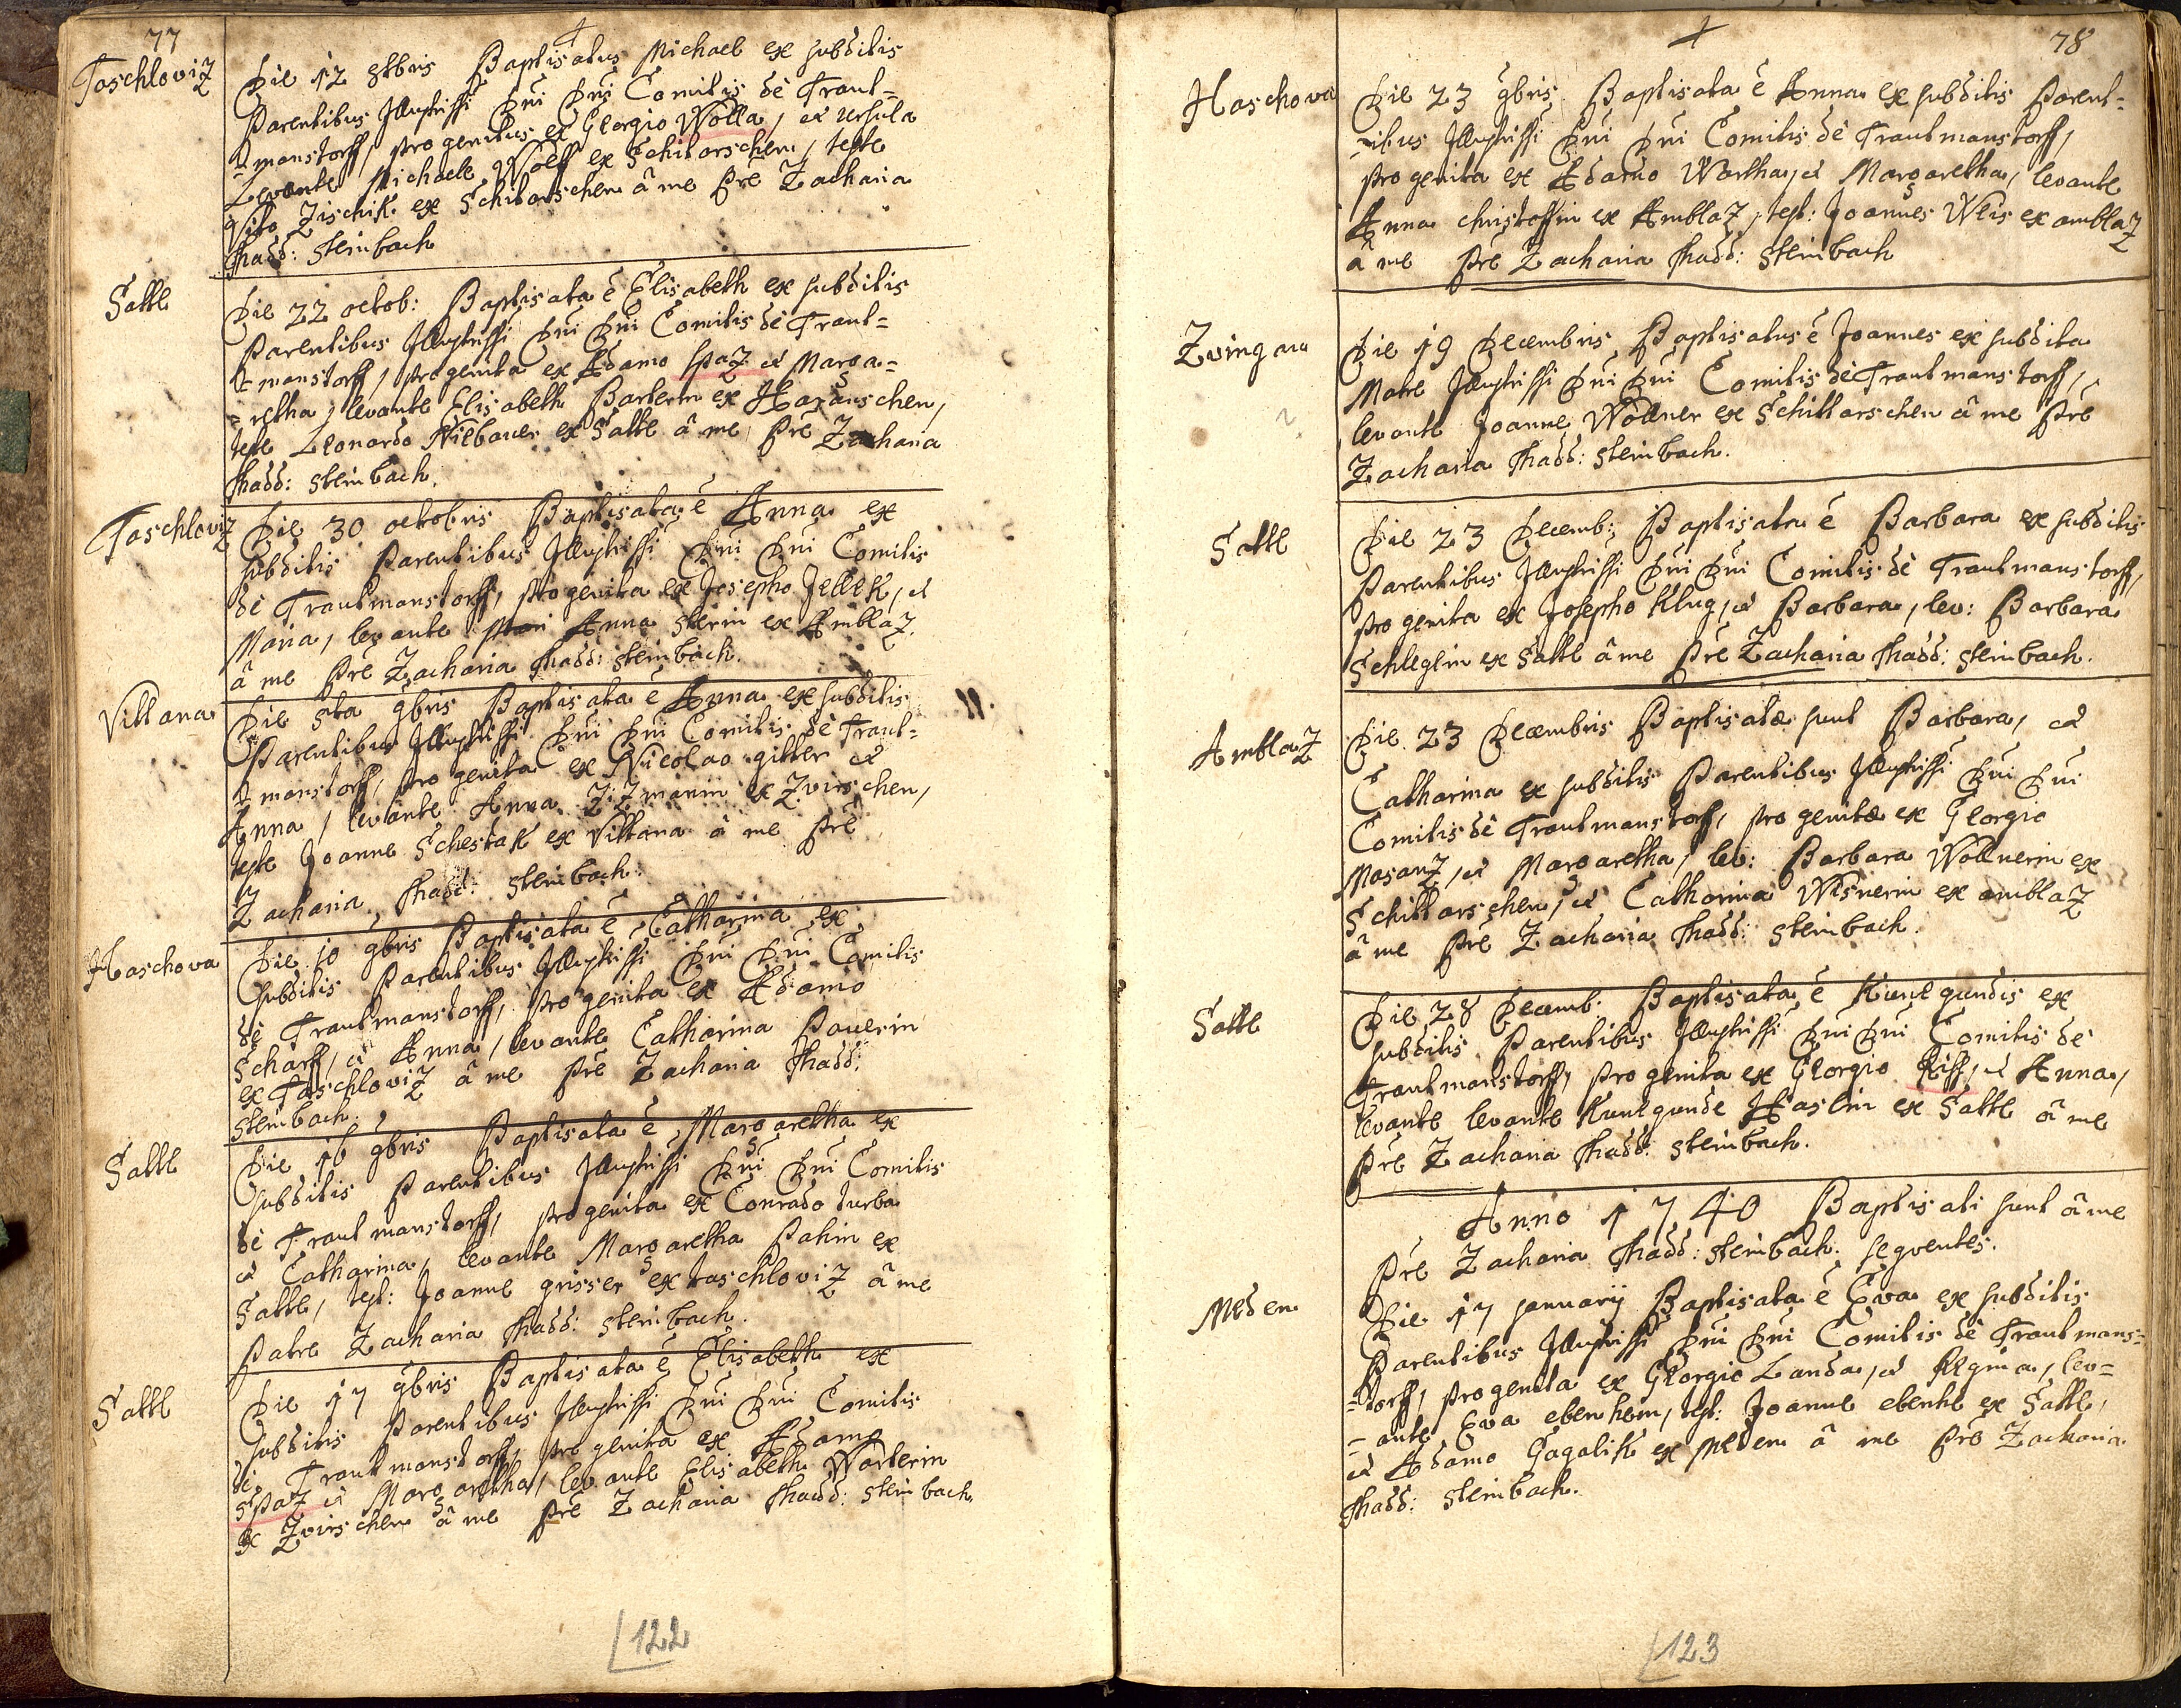 77
Taschloviz
Die 12 8tbris Baptisatus Michael ex subditis
Parentibus Illustrissi Dni Dni Comitis de Traut=
=manstorff, progenitus ex Georgio Wolla, et Ursula
Levante Michaele Wolff ex Schitarschen, teste
Vito Zischik ex Schitarschen â me Pre Zacharia
Thadd: Steinbach
Sattl
Die 22 octob: Baptisata ê Elisabeth ex subditis
Parentibus Illustrissi Dni Dni Comitis de Traut=
=manstorff, progenita ex Adamo Spaz et Marga=
=retha, levante Elisabeth Barterin ex Haschen,
teste Leonardo Niebauer ex Sattl â me Pre Zacharia
Thadd: Steinbach.
Taschloviz
Die 30 octobris Baptisata ê Anna ex
subditis Parentibus Illustrissi Dni Dni Comitis
de Trautmanstorff, progenita ex Josepho Jellek, et
Maria, levante Anna Sterin ex Amblaz
â me Pre Zacharia Thadd: Steinbach.
Vittana
Die 5ta 9bris Baptisata ê Anna ex subditis
Parentibus Illustrissi Dni Dni Comitis de Traut=
=manstorff, progenita ex Nicolao gitter et
Anna, levante Anna Zizmanin ex Zvirschen,
teste Joanne Schestak ex Vittana â me Pre
Zacharia Thadd: Steinbach.
Haschova
Die 10 9bris Baptisata ê Catharina ex
subditis Parentibus Illustrissi Dni Dni Comitis
de Trautmanstorff, progenita ex Adamo
Scharff, et Anna, levante Catharina Pauerin
ex Taschloviz â me Pre Zacharia Thadd:
Steinbach.
Sattl
Die 16 9bris Baptisata ê Margaretha ex
subditis Parentibus Illustrissi Dni Dni Comitis
de Trautmanstorff, progenita ex Conrado turba
et Catharina, levante Margaretha Pahin ex
Sattl, test: Joanne grisser ex taschloviz â me
Patre Zacharia Thadd: Steinbach.
Sattl
Die 17 9bris Baptisata ê Elisabeth ex
subditis Parentibus Illustrissi Dni Dni Comitis
de Trautmanstorff, progenita ex Adamo
Spaz et Margaretha, levante Elisabeth Warterin
ex Zvirschen â me Pre Zacharia Thadd: Steinbach.
122
78
Haschova
Die 23 9bris Baptisata ê Anna ex subditis Parent=
=ibus Illustrissi Dni Dni Comitis de Trautmanstorff,
progenita ex Adamo Wartha, et Margaretha, levante
Anna christoffin ex Amblaz, test: Joannes Weis ex amblaz
â me Pre Zacharia Thadd: Steinbach
Zvingau
Die 19 Decembris Baptisatus ê Joannes ex subdita
Matre Illustrissi Dni Dni Comitis de Trautmanstorff,
levante Joanne Wöllner ex Schittarschen â me Pre
Zacharia Thadd: Steinbach.
Sattl
Die 23 Decemb: Baptisata ê Barbara ex subditis
Parentibus Illustrissi Dni Dni Comitis de Trautmanstorff,
progenita ex Josepho Klug, et Barbara, lev: Barbara
Schleglin ex Sattl â me Pre Zacharia Thadd: Steinbach.
Amblaz
Die 23 Decembris Baptisatæ sunt Barbara, et
Catharina ex subditis Parentibus Illustrissi Dni Dni
Comitis de Trautmanstorff, progenitæ ex Georgio
Mosanz, et Margaretha, lev: Barbara Wöllnerin ex
Schittarschen, et Catharina Wisnerin ex amblaz
â me Pre Zacharia Thadd: Steinbach.
Sattl
Die 28 Decemb: Baptisata ê Kunegundis ex
subditis Parentibus Illustrissi Dni Dni Comitis de
Trautmanstorff, progenita ex Georgio Riss, et Anna,
levante levante Kunegunde Haslin ex Sattl â me
Pre Zacharia Thadd: Steinbach.
Anno 1740 Baptisati sunt â me
Pre Zacharia Thadd: Steinbach. seqventes.
Meden
Die 17 January Baptisata ê Eva ex subditis
Parentibus Illustrissi Dni Dni Comitis de Trautmans=
=torff, progenita ex Georgio Landa, et Regina, lev=
=ante Eva ebenhein, test: Joanne ebenhe ex Sattl,
et Adamo Gagalik ex Meden â me Pre Zacharia
Thadd: Steinbach.
123